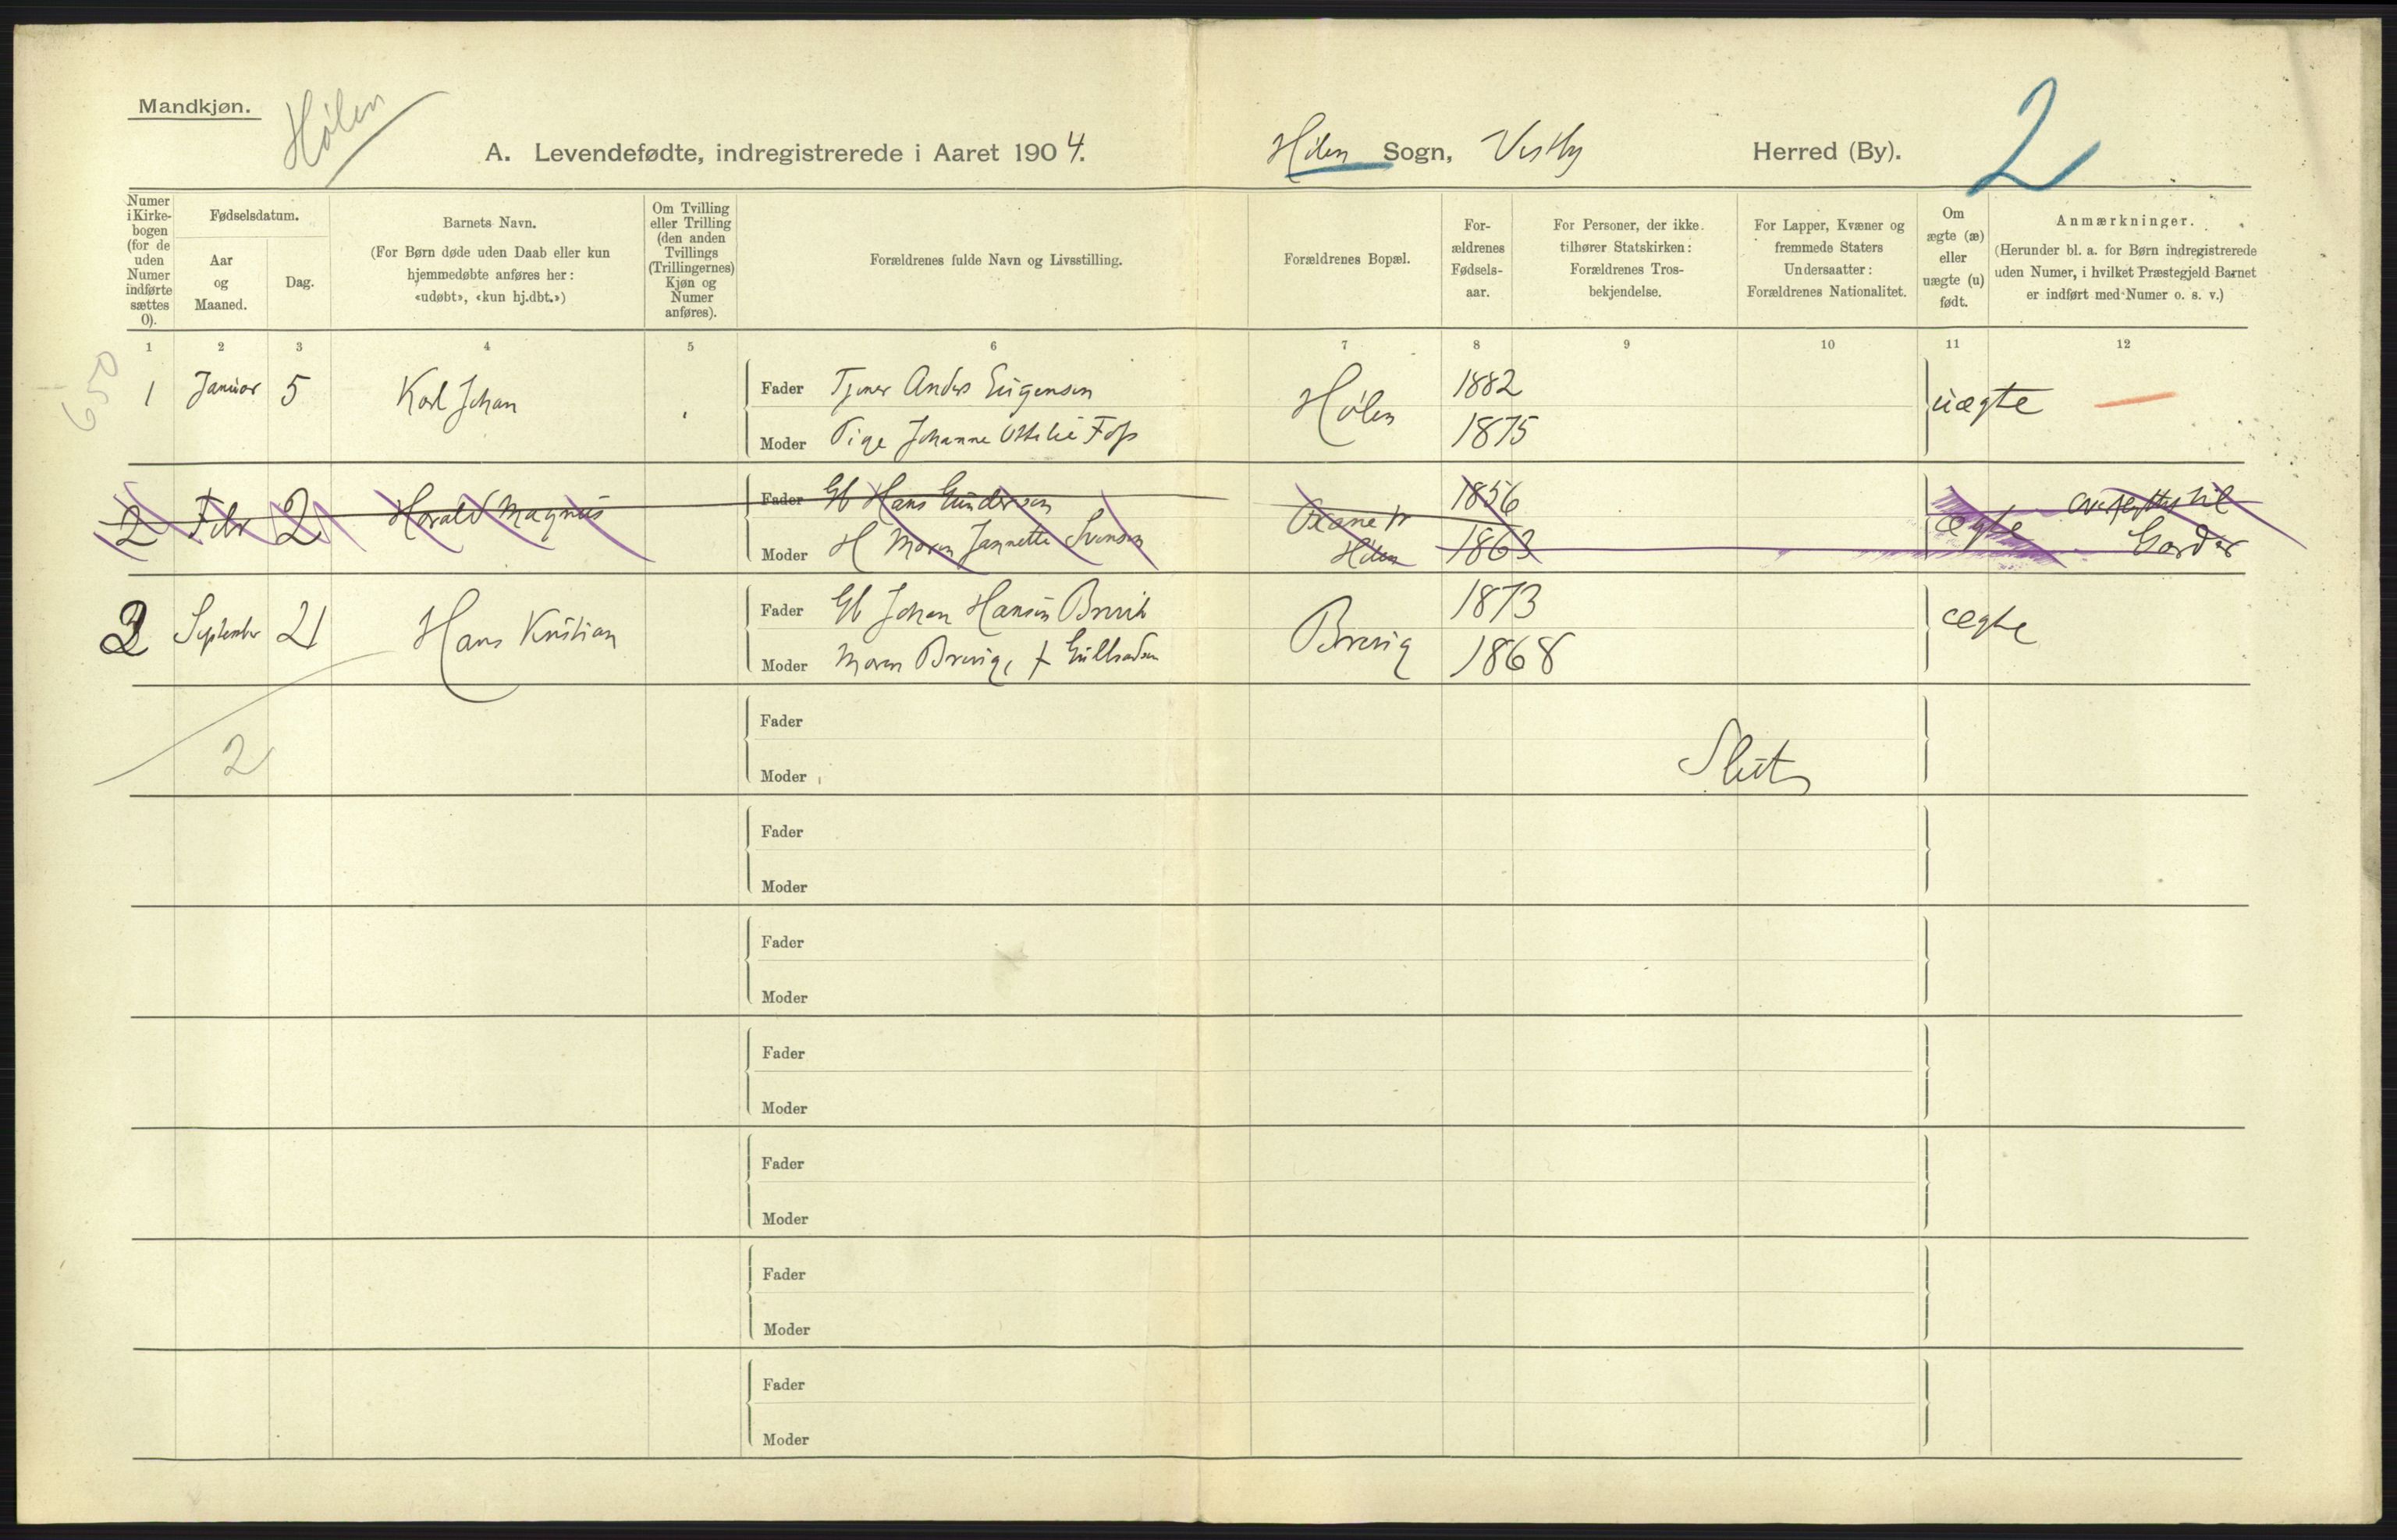 Mandkjøn.
Hølen
A. Levendefødte, indregistrerede i Aaret 1904.
Hølen Sogn, Vestby Herred (By).
2
Numer i Kirke- bogen (for de uden Numer indførte sættes 0).
Fødselsdatum.
Aar og Maaned.
Dag.
Barnets Navn.
(For Børn døde uden Daab eller kun hjemmedøbte anføres her: «udøbt», «kun hj.dbt.»)
Om Tvilling eller Trilling (den anden Tvillings (Trillingernes) Kjøn og Numer anføres).
Forældrenes fulde Navn og Livsstilling.
Forældrenes Bopæl.
For- ældrenes Fødsels- aar.
For Personer, der ikke tilhører Statskirken: Forældrenes Tros- bekjendelse.
For Lapper, Kvæner og fremmede Staters Undersaatter: Forældrenes Nationalitet.
Om ægte (æ) eller uægte (u) født.
Anmærkninger.
(Herunder bl. a. for Børn indregistrerede uden Numer, i hvilket Præstegjeld Barnet er indført med Numer o. s. v.)
1 2 3 4 5 6 7 8 9 10 11 12
650
1 Januar 5 Karl Johan
Fader Tjener Anders 1882
Moder Pige Johanne Ottilie Foss 1875
Hølen uægte
2 Febr 2 Harald Magnus
Fader Gb Hans Gundersen 1856
Moder H Maren Jannette Svensen 1863
Hølen ægte
overflyttes til Garder
2 September 21 Hans Kristian
Fader Gb Johan Hansen Brevik 1873
Moder Maren Brevig, f Gulbrandsen 1868
Brevig ægte
2
Fader
Moder
Slut
Fader
Moder
Fader
Moder
Fader
Moder
Fader
Moder
Fader
Moder
Fader
Moder